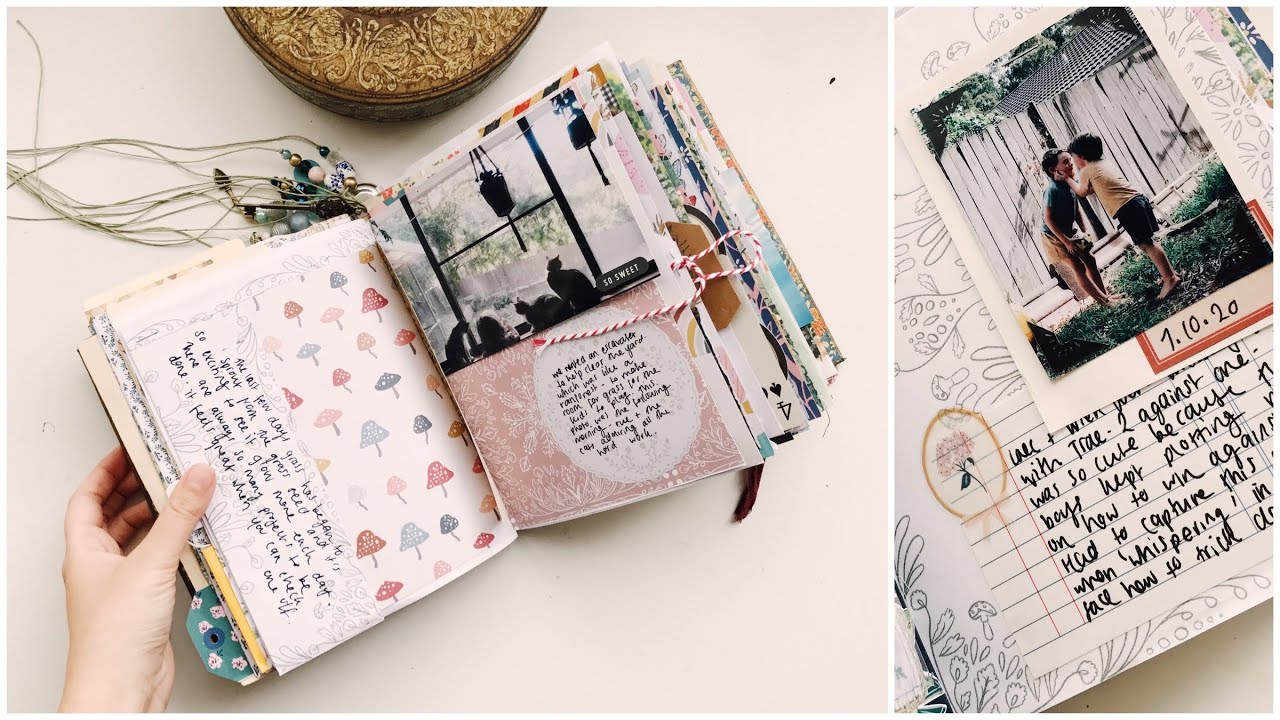 so
The last few days grass has began to
+ sprout from the grass seed and it's
exciting to see it grow more each day.
There are always so many projects to be
done. it feels great when you can check
one off.
SO SWEET
we rented an excavator
to help clear the yard.
which was like a
rainforest - to make
room for grass for the
kids to play. this
photo was the following
morning - me + the
cats admiring all the
hard work.
4
7.10.20
with
with Jrae. 2 against one.
was so cute because
boys kept plotting
on how to win against
to capture this
when 'whispering' in
face how to trick